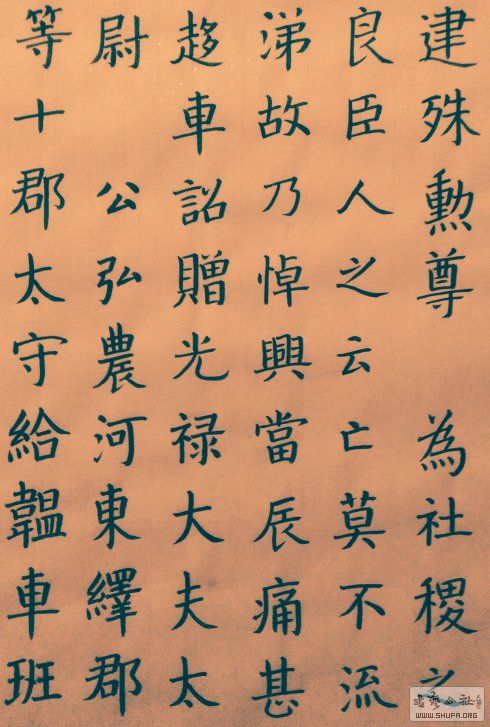 建殊勲尊 為社稷之
良臣人之云亡莫不流
涕故乃悼興當辰痛甚
趍車詔贈光禄大夫太
尉 公弘農河東繹郡
等十郡太守給轀車班
WWW.SHUFA.ORG